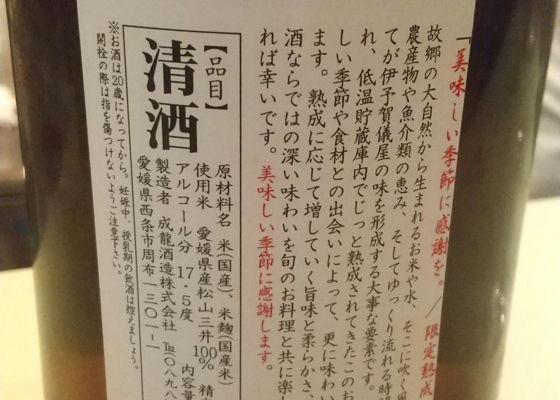 「美味しい季節に感謝を。／限定熟成
故郷の大自然から生まれるお米や水、そこに吹く風
農産物や魚介類の恵み、そしてゆっくり流れる時間
てが伊予賀儀屋の味を形成する大事な要素です。
れ、低温貯蔵庫内でじっと熟成されてきたこのお
しい季節や食材との出会いによって、更に味わい
ます。熟成に応じて増していく旨味と柔らかさ、
酒ならではの深い味わいを旬のお料理と共に楽し
れば幸いです。美味しい季節に感謝します。
【品目】
清酒
原材料名 米(国産)、米麹(国産米)
使用米 愛媛県産松山三井100% 精
アルコール分 17.5度 内容量
製造者 成龍酒造株式会社 ℡(〇八九八
愛媛県西条市周布一三〇一-一
※お酒は20歳になってから。妊娠中、授乳期の飲酒は控えましょう。
開栓の際は指を傷つけないようご注意下さい。